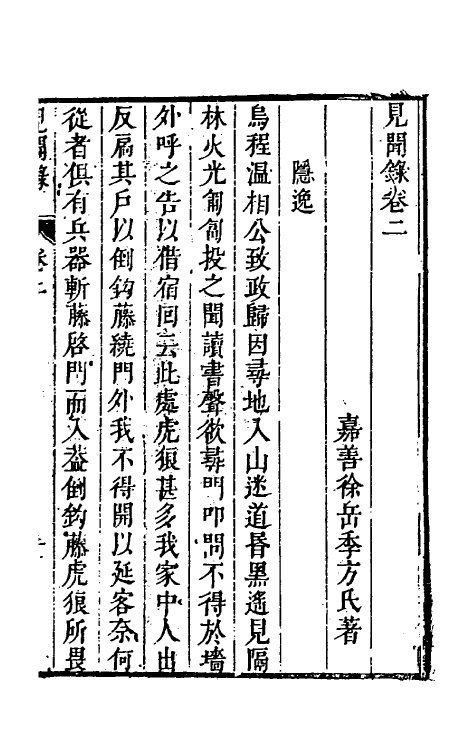 見聞錄卷二
嘉善徐岳季方氏著
隱逸
烏程温相公致政歸因尋地入山迷道昏黑遙見隔
林火光匍匐投之聞讀書聲欲尋門叩問不得於墻
外呼之告以借宿回云此處虎狼甚多我家中人出
反扃其戶以倒鈎藤繞門外我不得開以延客奈何
從者俱有兵器斬藤啓門而入葢倒鈎藤虎狼所畏
見聞錄
卷二